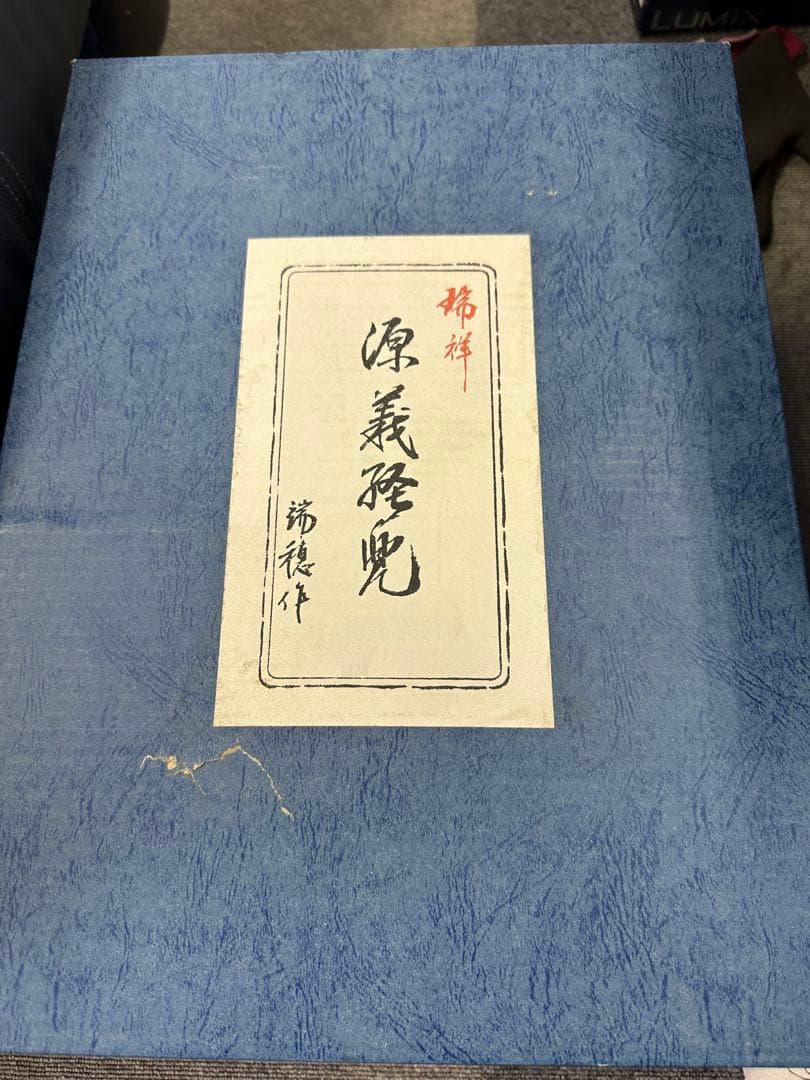 LUMIX
瑞祥
源義経兜
瑞穂作